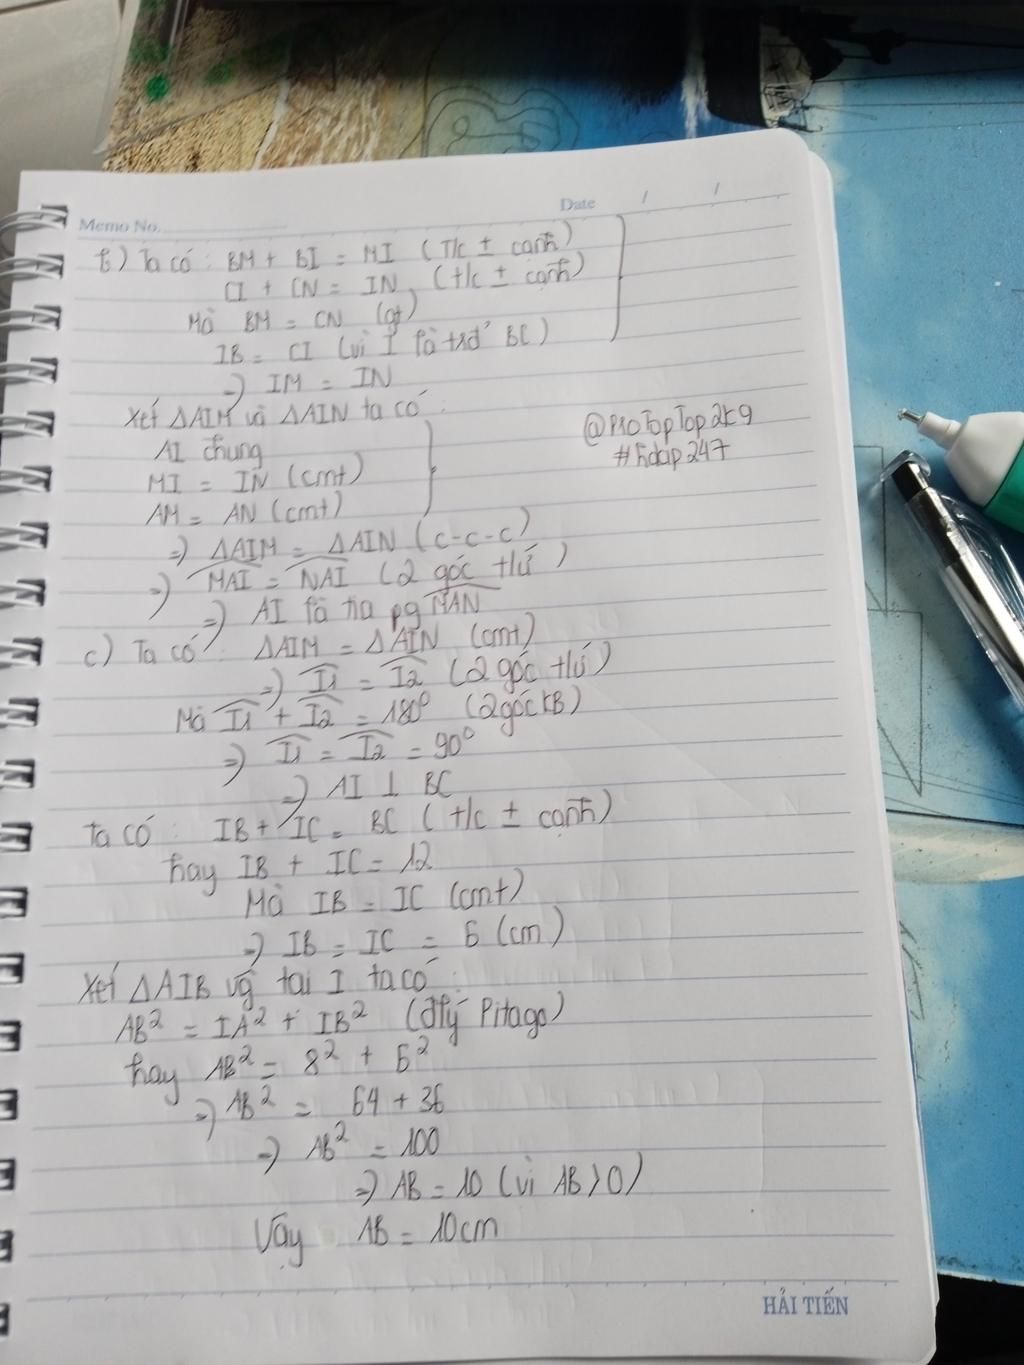 Memo No.
Date / /
b) Ta có : BM + BI = MI (T/c ± cạnh)
CI + CN = IN (t/c ± cạnh)
Mà BM = CN (gt)
IB = CI (vì I là trđ BC)
=) IM = IN
Xét ΔAIM và ΔAIN ta có :
AI chung
MI = IN (cmt)
AM = AN (cmt)
@ProTopTop2k9
#hdap247
=) ΔAIM = ΔAIN (c-c-c)
=) MAI = NAI (2 góc tứ)
=) AI là tia pg MAN
c) Ta có : ΔAIM = ΔAIN (cmt)
=) I1 = I2 (2 góc tứ)
Mà I1 + I2 = 180° (2 góc kB)
=) I1 = I2 = 90°
=) AI ⊥ BC
Ta có : IB + IC = BC (t/c ± cạnh)
hay IB + IC = 12
Mà IB = IC (cmt)
=) IB = IC = 6 (cm)
Xét ΔAIB vg tại I ta có :
AB² = IA² + IB² (đlý Pitago)
hay AB² = 8² + 6²
=) AB² = 64 + 36
=) AB² = 100
=) AB = 10 (vì AB > 0)
Vậy AB = 10cm
HẢI TIẾN